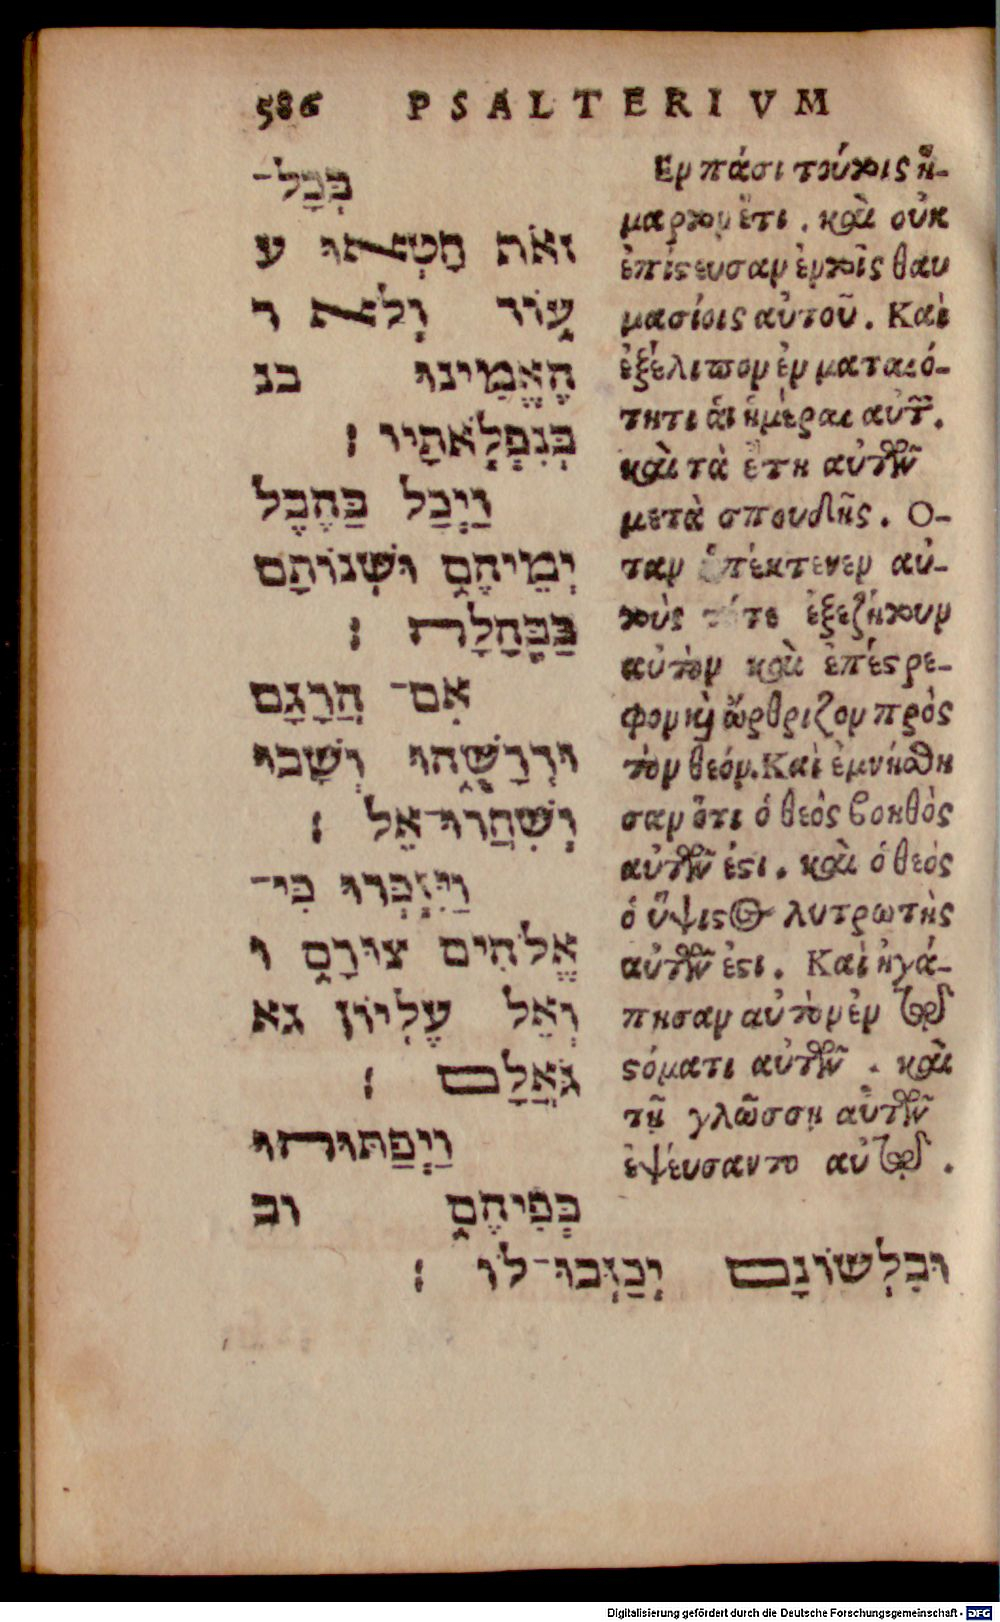 586 PSALTERIVM
בְּכָל־
זֹאת חָטְאוּ ע
עֽוֹד וְלֹא ו
הֶאֱמִינוּ בנ
בְּנִפְלְאֹתָיו :
וַיְכַל בַּהֶבֶל
יְמֵיהֶם וּשְׁנוֹתָם
בַּבֶּהָלָה :
אִם־ הֲרָגָם
וּדְרָשׁוּהוּ וְשָׁבוּ
וְשִׁחֲרוּ־אֵל :
וַיִּזְכְּרוּ כִּי־
אֱלֹהִים צוּרָם ו
וְאֵל עֶלְיוֹן גא
גֹּאֲלָם :
וַיְפַתּוּהוּ
בְּפִיהֶם וב
וּבִלְשׁוֹנָם יְכַזְּבוּ־לוֹ :
Εν πάσι τούτοις ἥ-
μαρτον ἔτι . καὶ οὐκ
ἐπίστευσαν ἐν τοῖς θαυ
μασίοις αὐτοῦ . Καὶ
ἐξέλιπον ἐν ματαιό-
τητι ἁι ἡμέραι αὐτῶν .
καὶ τὰ ἔτη αὐτῶν
μετὰ σπουδῆς . Ο-
ταν ἀπέκτενεν αὐ-
τοὺς τότε ἐξεζήτουν
αὐτὸν καὶ ἐπέστρε-
φον καὶ ὤρθριζον πρὸς
τὸν θεόν. Καὶ ἐμνήσθη
σαν ὅτι ὁ θεὸς βοηθὸς
αὐτῶν ἐστι . καὶ ὁ θεὸς
ὁ ὕψιστος λυτρωτὴς
αὐτῶν ἐστι . Καὶ ἠγά-
πησαν αὐτὸν ἐν τῷ
στόματι αὐτῶν . καὶ
τῇ γλῶσσῃ αὐτῶν
ἐψεύσαντο αὐτῷ .
Digitalisierung gefördert durch die Deutsche Forschungsgemeinschaft - DFG